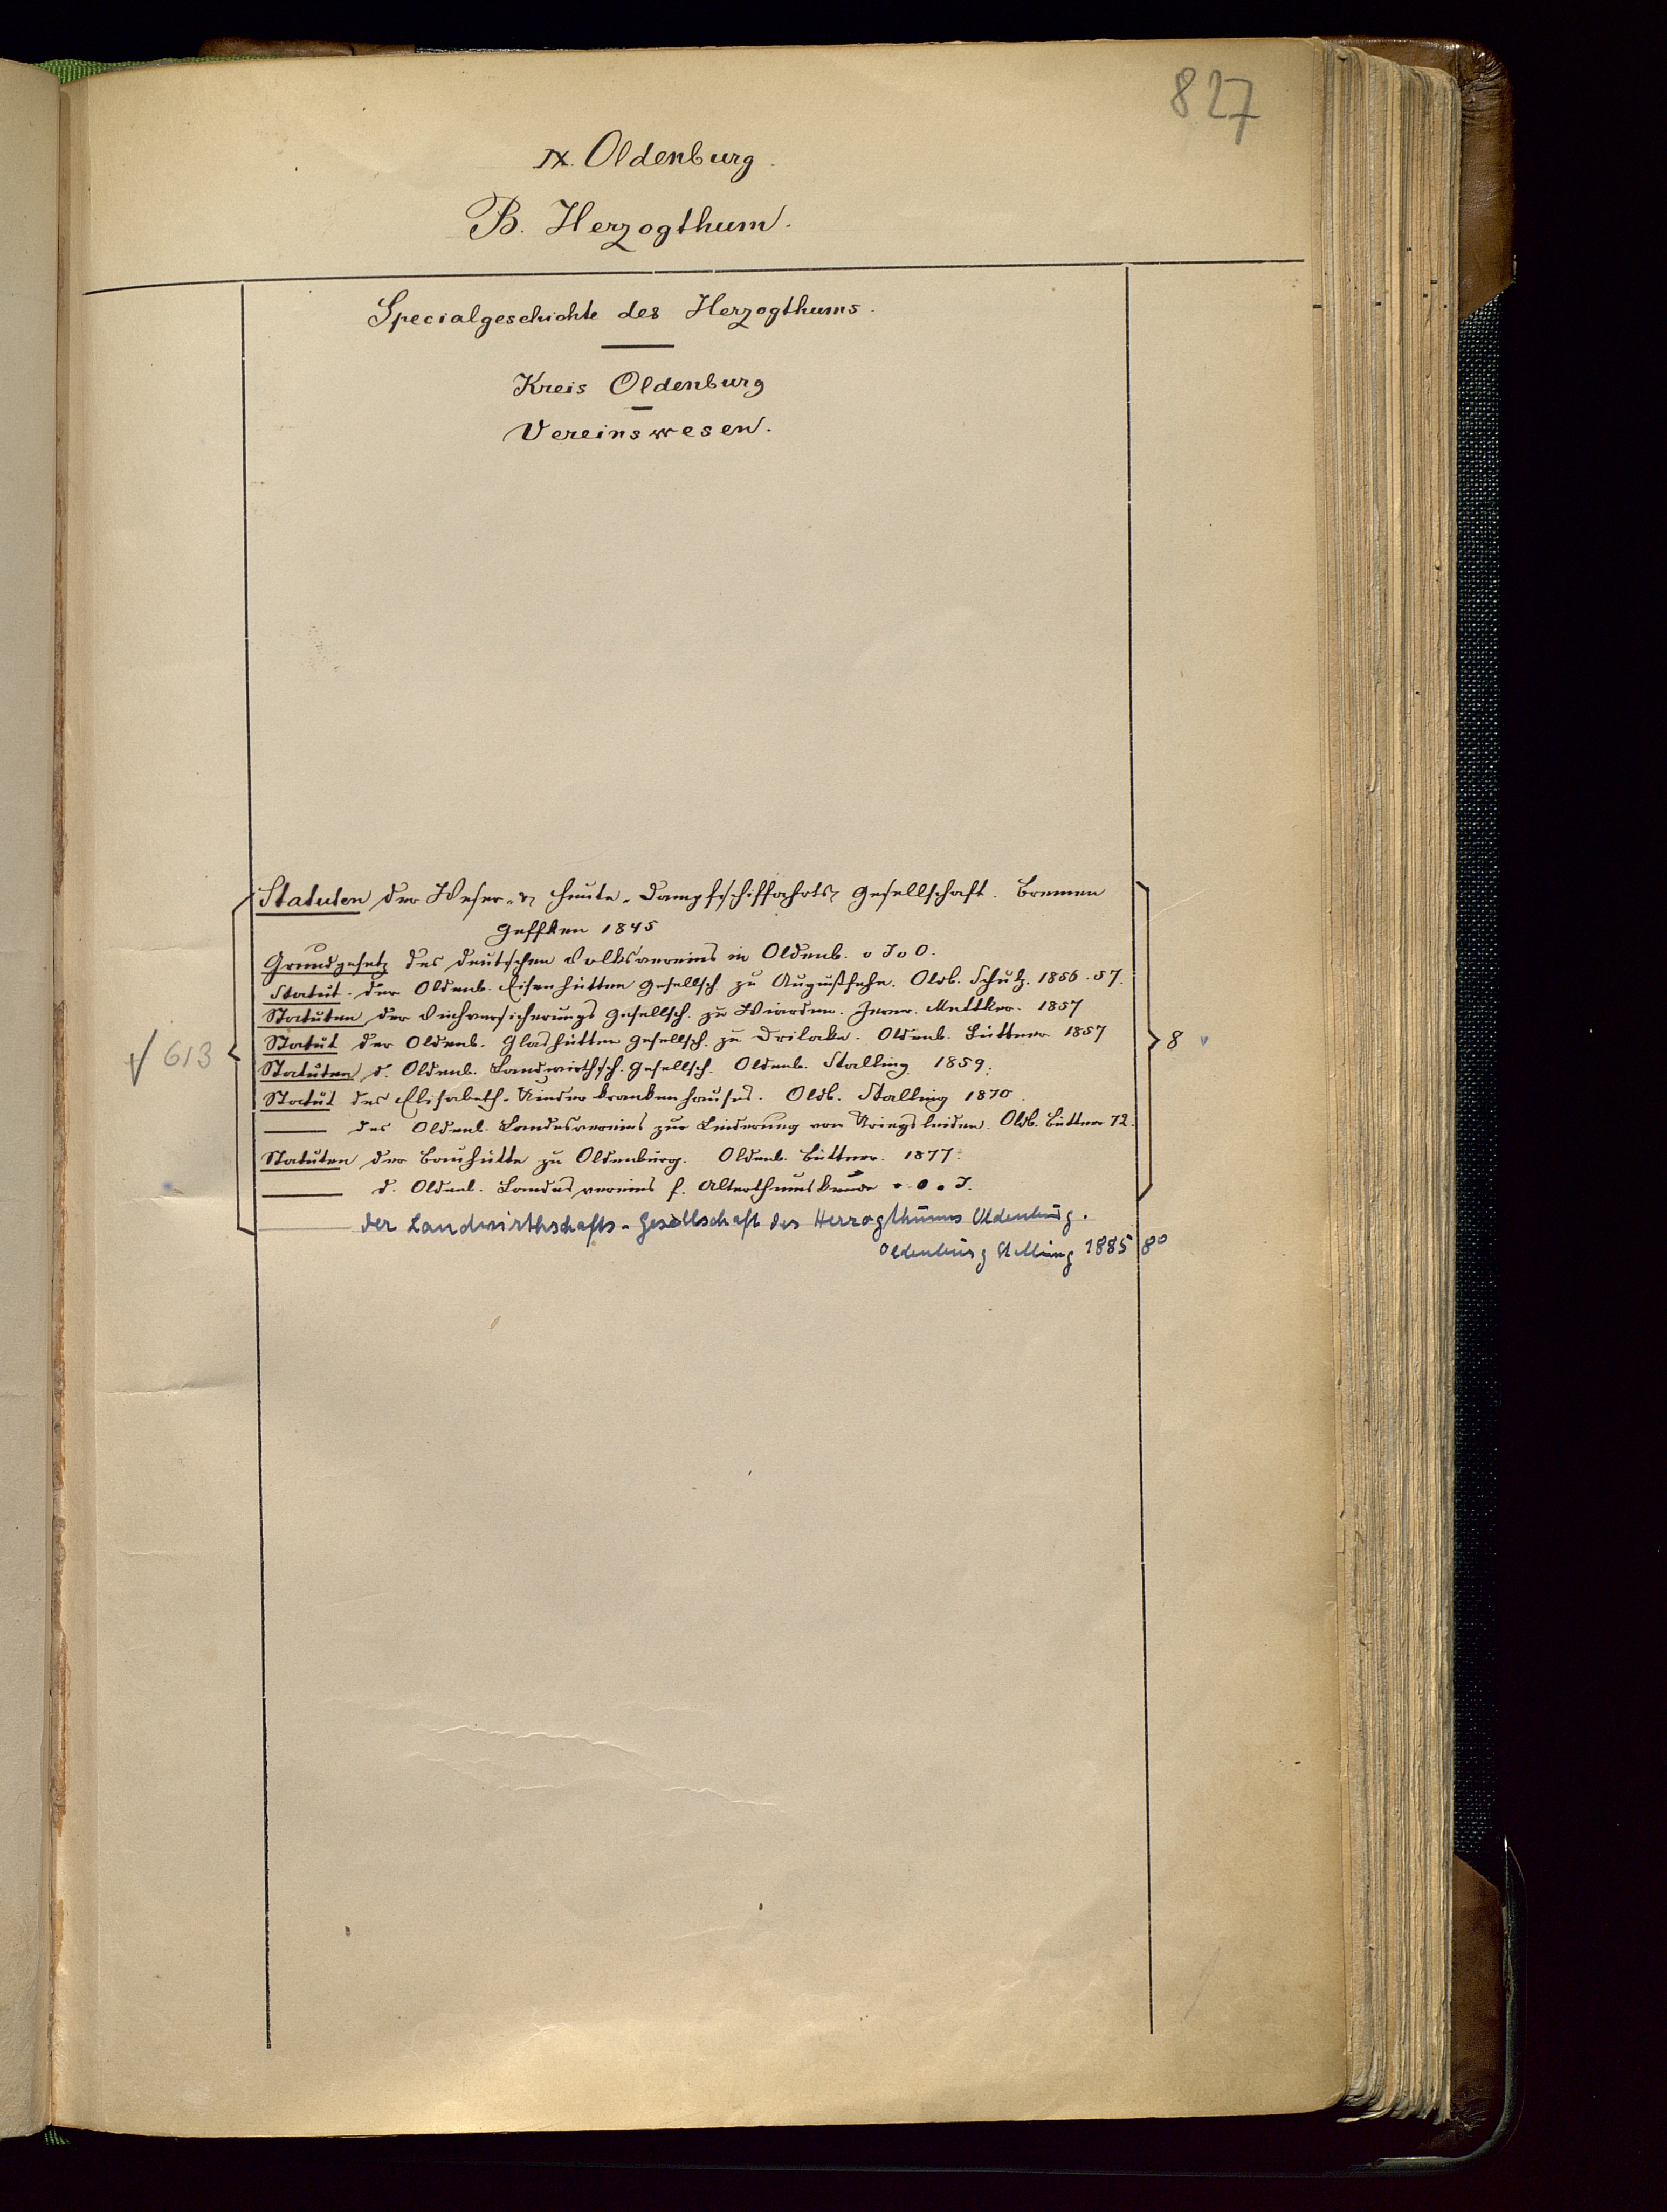 827
IX. Oldenburg.
B. Herzogthum.
Specialgeschichte des Herzogthums.
Kreis Oldenburg
Vereinswesen.
Statuten der Weser- & Hunte-Dampfschiffahrts Gesellschaft. Bremen
Geffken 1845
Grundgesetz des deutschen Volksvereins in Oldenb. o J o O.
Statut. der Oldenb. Eisenhütten Gesellsch. zu Augustfehn. Oldb. Schulz. 1856.57.
Statuten der Viehversicherungs Gesellsch. zu Wiarden. Jever. Mettker. 1857
√ 613
Statut der Oldenb. Glashütten Gesellsch. zu Drilake. Oldenb. Büttner. 1857
8
Statuten d. Oldenb. Landwirthsch. Gesellsch. Oldenb. Stalling. 1859.
Statut des Elisabeth-Kinderkrankenhauses. Oldb. Stalling 1870.
— des Oldenb. Landesvereins zur Linderung von Kriegsleiden. Oldb. Büttner 72.
Statuten der Bauhütte zu Oldenburg. Oldenb. Büttner. 1877.
— d. Oldenb. Landesvereins f. Alterthumskunde o. O. o. J.
— der Landwirthschafts-Gesellschaft des Herzogthums Oldenburg.
Oldenburg Stalling 1885 8°